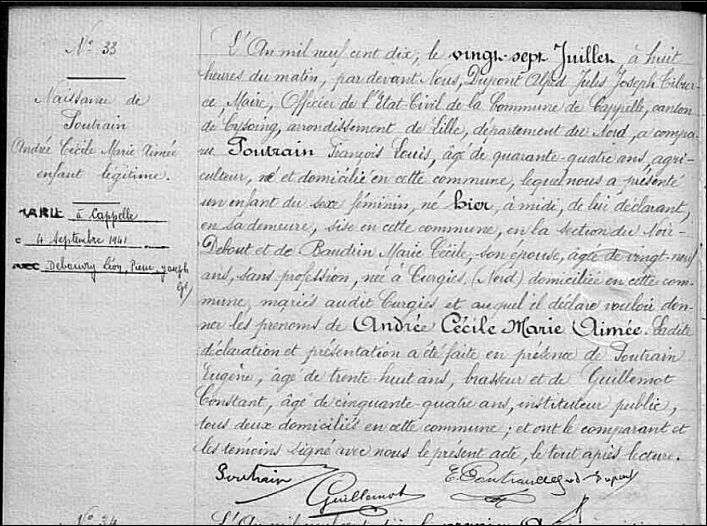 N° 33
Naissance de
Poutrain
Andrée Cécile Marie Aimée
enfant légitime.
MARIÉE à Cappelle
4 Septembre 1941
AVEC Debauvry Léon, Pierre, Joseph
L'An mil neuf cent dix, le vingt-sept Juillet, à huit
heures du matin, par devant Nous, Dupont Alfred Jules Joseph Tibur-
ce, Maire, Officier de l'Etat Civil de la Commune de Cappelle, canton
de Cysoing, arrondissement de Lille, département du Nord, a compa-
ru Poutrain François Louis, âgé de quarante-quatre ans, agri-
culteur, né et domicilié en cette commune, lequel nous a présenté
un enfant du sexe féminin, né hier, à midi, de lui déclarant,
en sa demeure, sise en cette commune, en la section du Noir-
Debout et de Baudrin Marie Cécile, son épouse, âgée de vingt-neuf
ans, sans profession, née à Curgies, (Nord) domiciliée en cette com-
mune, mariés audit Curgies et auquel il déclare vouloir don-
ner les prénoms de Andrée Cécile Marie Aimée. Ladite
déclaration et présentation a été faite en présence de Poutrain
Eugène, âgé de trente-huit ans, brasseur et de Guillemot
Constant, âgé de cinquante-quatre ans, instituteur public,
tous deux domiciliés en cette commune ; et ont le comparant et
les témoins signé avec nous le présent acte, le tout après lecture.
Poutrain Guillemot E. Poutrain Dupont
N° 34
L'An mil neuf cent dix, le